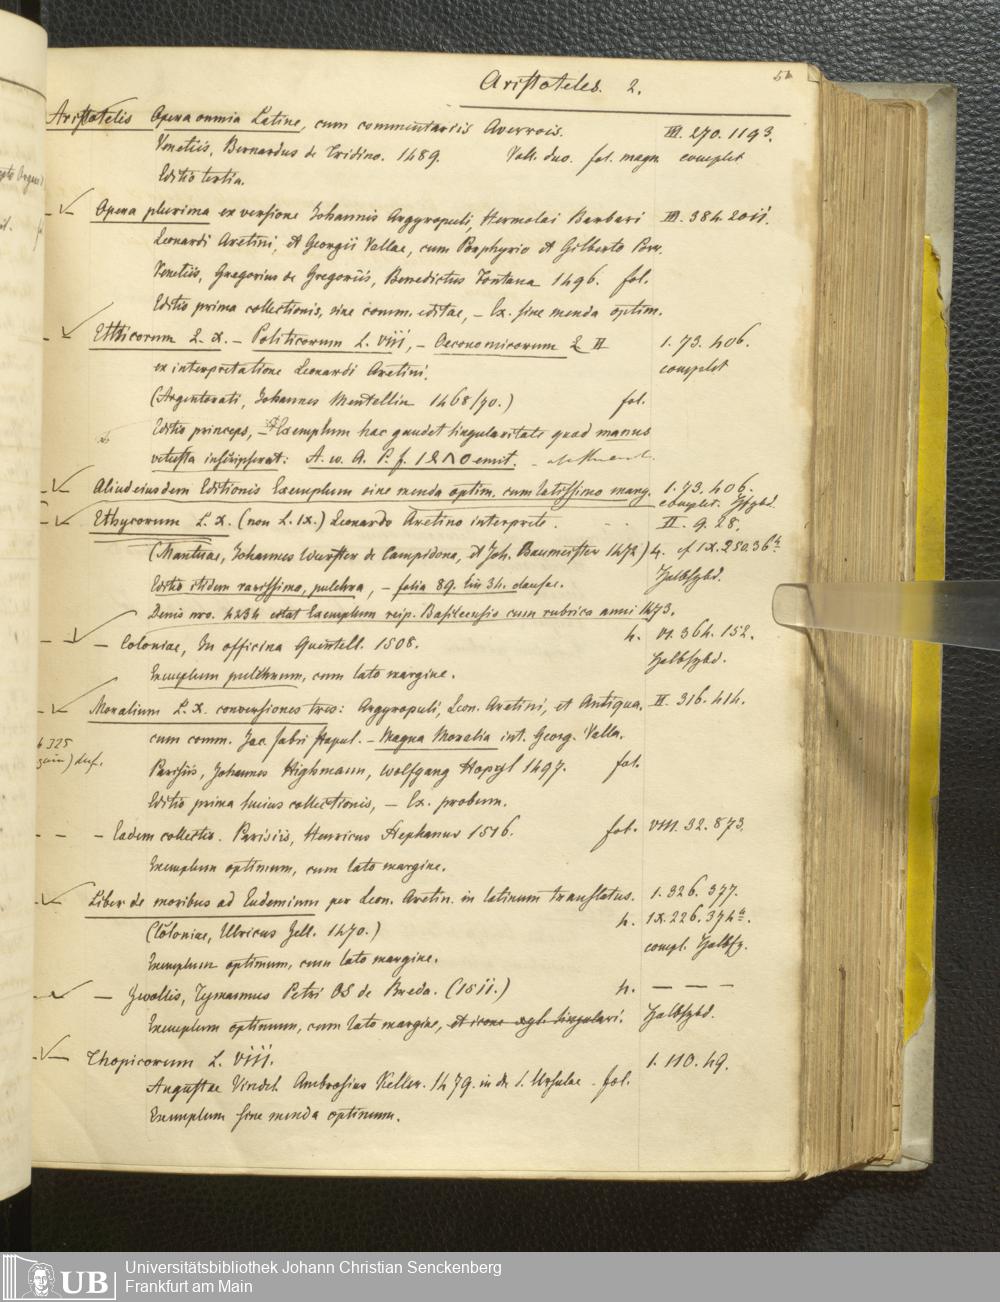 Aristoteles. 2.
Aristotelis Opera omnia Latine, cum commentariis Averrois. III. 270. 1193.
Venetiis, Bernardus de Tridino. 1489. Voll. duo. fol. magn. complet
Editio tertia.
Opera plurima ex versione Johannis Argyropuli, Hermolai Barbari III. 384. 2011.
Leonardi Aretini, et Georgii Vallae, cum Porphyrio et Gilberto Porr.
Venetiis, Gregorius de Gregoriis, Benedictus Fontana 1496. fol.
Editio prima collectionis, sine comm. editae, – Ex. sine menda optim.
Ethicorum L. X. – Politicorum L. VIII, – Oeconomicorum L II 1. 73. 406.
ex interpretatione Leonardi Aretini. complet
(Argentorati, Johannes Mentellin 1468/70.) fol.
Editio princeps, – Exemplum hac gaudet singularitate quod manus
vetusta inscripserat: A. w. A. P. f. emit.
Aliud eiusdem Editionis Exemplum sine menda optim. cum latissimo marg. 1. 73. 406.
complet. Hfzbd.
Ethycorum L. X. (non L. IX.) Leonardo Aretino interprete. II. 9. 28.
(Mantuae, Johannes Wurster de Campidona, et Joh. Baumeister 1472) 4. cf IX. 250. 36a.
Editio itidem rarissima, pulchra, – folia 89. lin 34. clausae. Halbfzbd.
Denis nro. 4234 citat Exemplum reip. Basileensis cum rubrica anni 1473.
– Coloniae, In officina Quentell. 1508. 4. VI. 364. 152.
Exemplum pulchrum, cum lato margine. Halbfzbd.
Moralium L. X. conversiones tres: Argyropuli, Leon. Aretini, et Antiqua. II. 316. 414.
cum comm. Jac. Fabri Stapul. – Magna Moralia int. Georg. Valla.
Parisiis, Johannes Highmann, Wolfgang Hopyl 1497. fol.
Editio prima huius collectionis, – Ex. probum.
– Eadem collectio. Parisiis, Henricus Stephanus 1516. fol. VIII. 32. 873.
Exemplum optimum, cum lato margine.
Liber de moribus ad Eudemium per Leon. Aretin. in latinum translatus. 1. 326. 377.
(Coloniae, Ulricus Zell. 1470.) 4. IX. 226. 374a.
Exemplum optimum, cum lato margine. compl. Halbfz.
– Zwollis, Tymannus Petri OS de Breda. (1511.) 4. – – –
Exemplum optimum, cum lato margine, et icone xyl. singulari. Halbfzbd.
Thopicorum L. VIII. 1. 110. 49.
Augustae Vindel. Ambrosius Keller. 1479. in die s. Ursulae. fol.
Exemplum sine menda optimum.
UB
Universitätsbibliothek Johann Christian Senckenberg
Frankfurt am Main